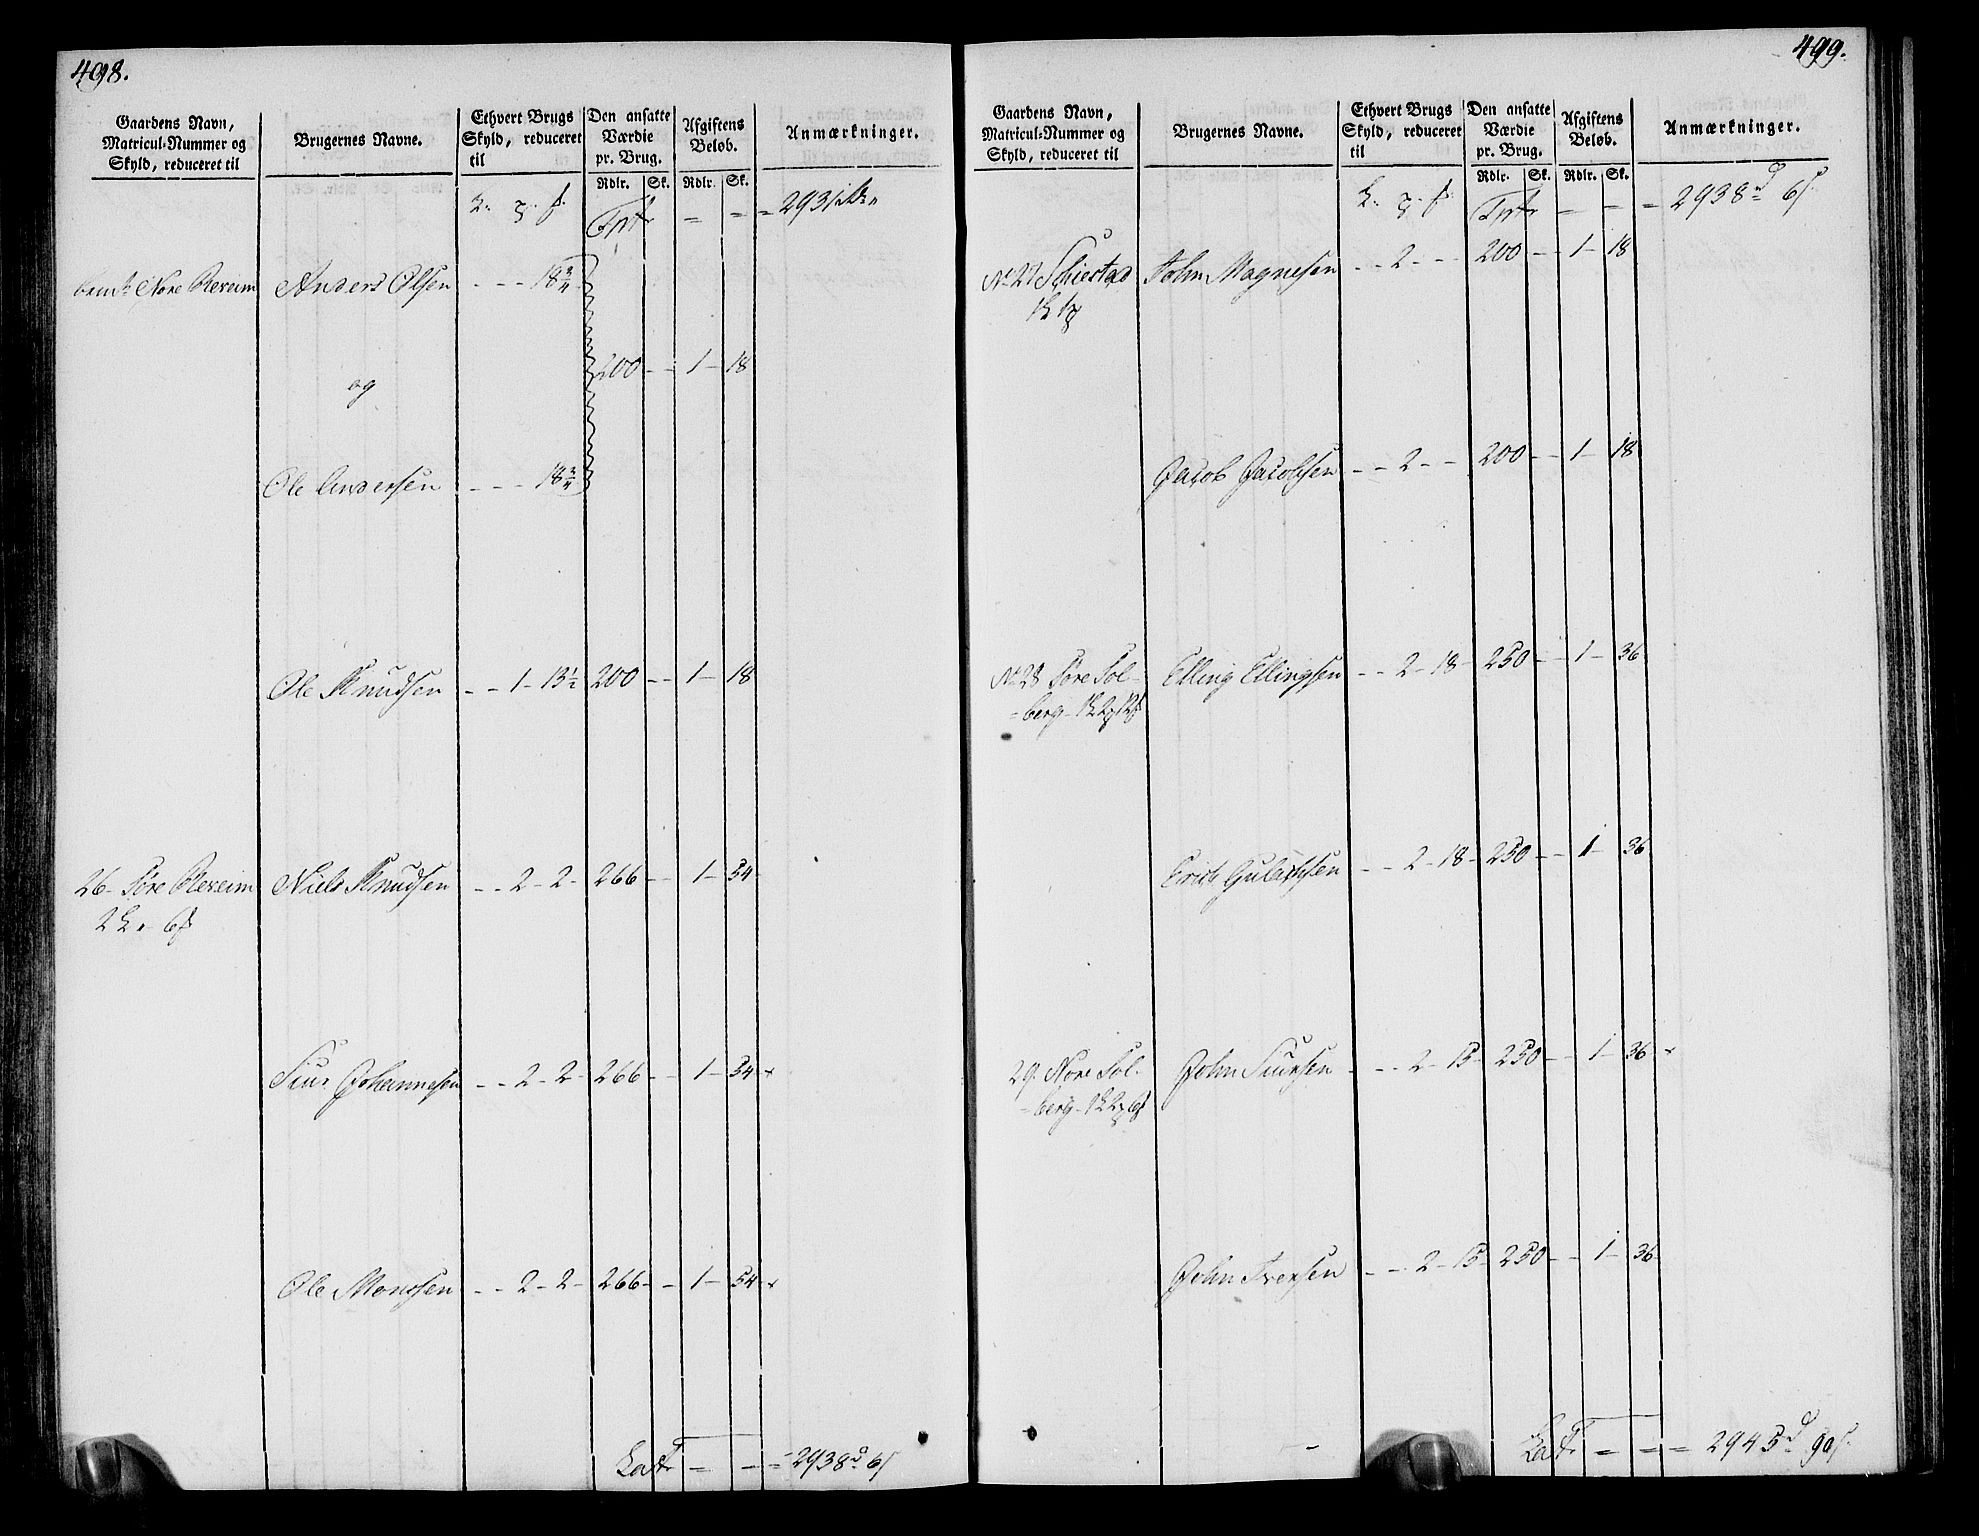 498.
Gaardens Navn, Matricul-Nummer og Skyld, reduceret til
Brugernes Navne.
Ethvert Brugs Skyld, reduceret til
Den ansatte Værdie pr. Brug.
Afgiftens Beløb.
Anmærkninger.
Rdlr. Sk. Rdlr. Sk.
= = = 2931
Nore Reveim Anders Olsen - - - 18 3/4
og 200 - - 1 - 18
Ole Andersen - - - 18 3/4
Ole Knudsen - - 1 - 13 1/2 200 - - 1 - 18
26 - Søre Reveim Niels Knudsen - - 2 - 2 - 266 - - 1 - 54
Siur Johannesen - - 2 - 2 - 266 - - 1 - 54 +
Ole Monssen - - 2 - 2 - 266 - - 1 - 54 +
Lat = = = 2938 d 6 s
499.
Gaardens Navn, Matricul-Nummer og Skyld, reduceret til
Brugernes Navne.
Ethvert Brugs Skyld, reduceret til
Den ansatte Værdie pr. Brug.
Afgiftens Beløb.
Anmærkninger.
Rdlr. Sk. Rdlr. Sk.
= = = 2938 d 6 s
No 27 Schiestad John Magnesen - - 2 - - 200 - - 1 - 18
Jacob Jacobsen - - 2 - - 200 - - 1 - 18
No 28 Søre Sol- Elling Ellingsen - - 2 - 18 - 250 - - 1 - 36
= berg
Erich Gulachsen - - 2 - 18 - 250 - - 1 - 36
29. Nore Sol- John Siursen - - 2 - 15 - 250 - - 1 - 36 +
= berg
John Iversen - - 2 - 15 - 250 - - 1 - 36
Lat = = = 2945 d 90 s.